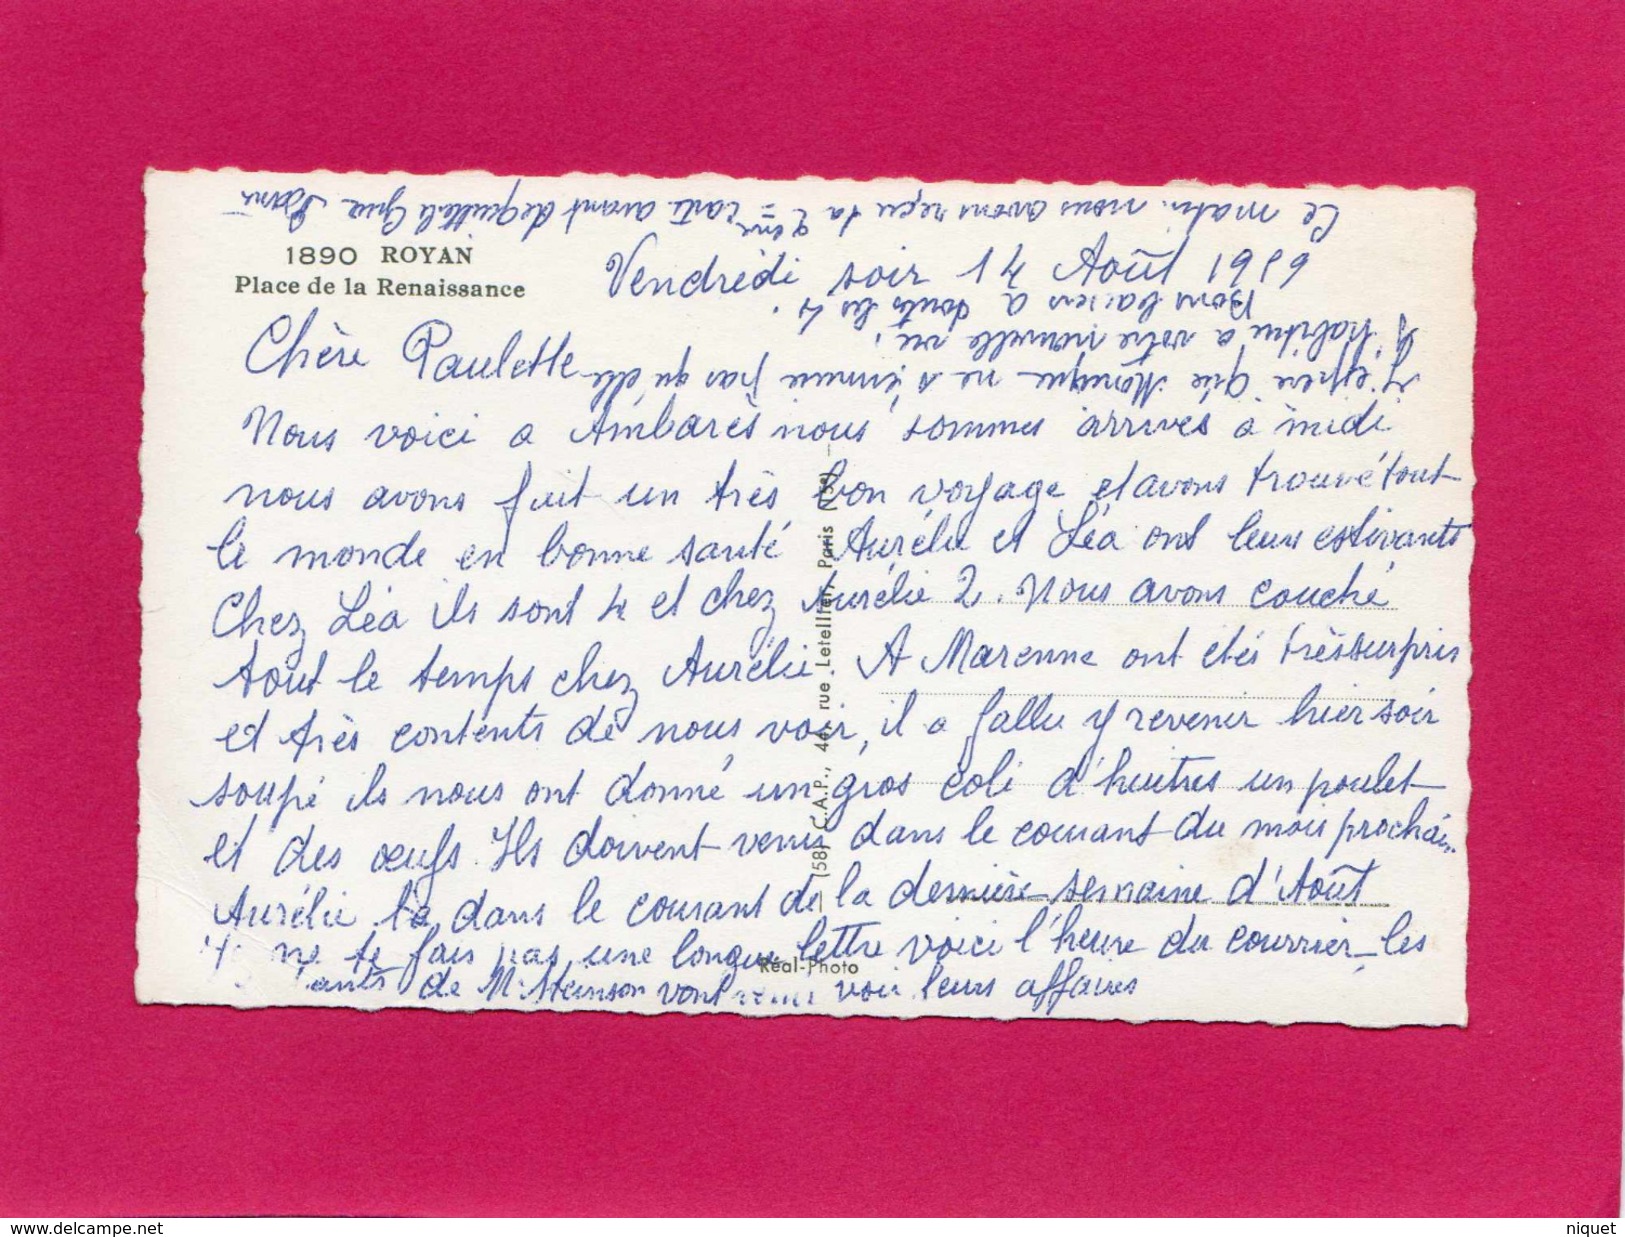 1890 ROYAN
Place de la Renaissance
Vendrédi soir 14 Août 1959
Chère Paulette
Nous voici a Ambarès nous sommes arrivés a midi
nous avons fait un très bon voyage et avons trouvé tout
le monde en bonne santé Aurélie et Léa ont leurs estivants
Chez Léa ils sont 4 et chez Aurélie 2. Nous avons couché
tout le temps chez Aurélie. A Marenne ont étés très surpris
et très contents de nous voir, il a fallu y revenir hier soir
soupé ils nous ont donné un gros coli d'huitres un poulet
et des œufs. Ils doivent venir dans le courant du mois prochain
Aurélie dans le courant de la dernière semaine d'Août
ne te fais pas une longue lettre voici l'heure du courrier les
de Mr vont voir leurs affaires
J'espère que Monique ne s'ennuie pas qu'elle
s'habitue a votre nouvelle vie.
Bons baisers a touts les 4.
Ce matin nous avons reçu ta 2ème carte avant de quitter
(58) C.A.P., 44, rue Letellier, Paris (15e)
Réal-Photo
www.delcampe.net
niquet